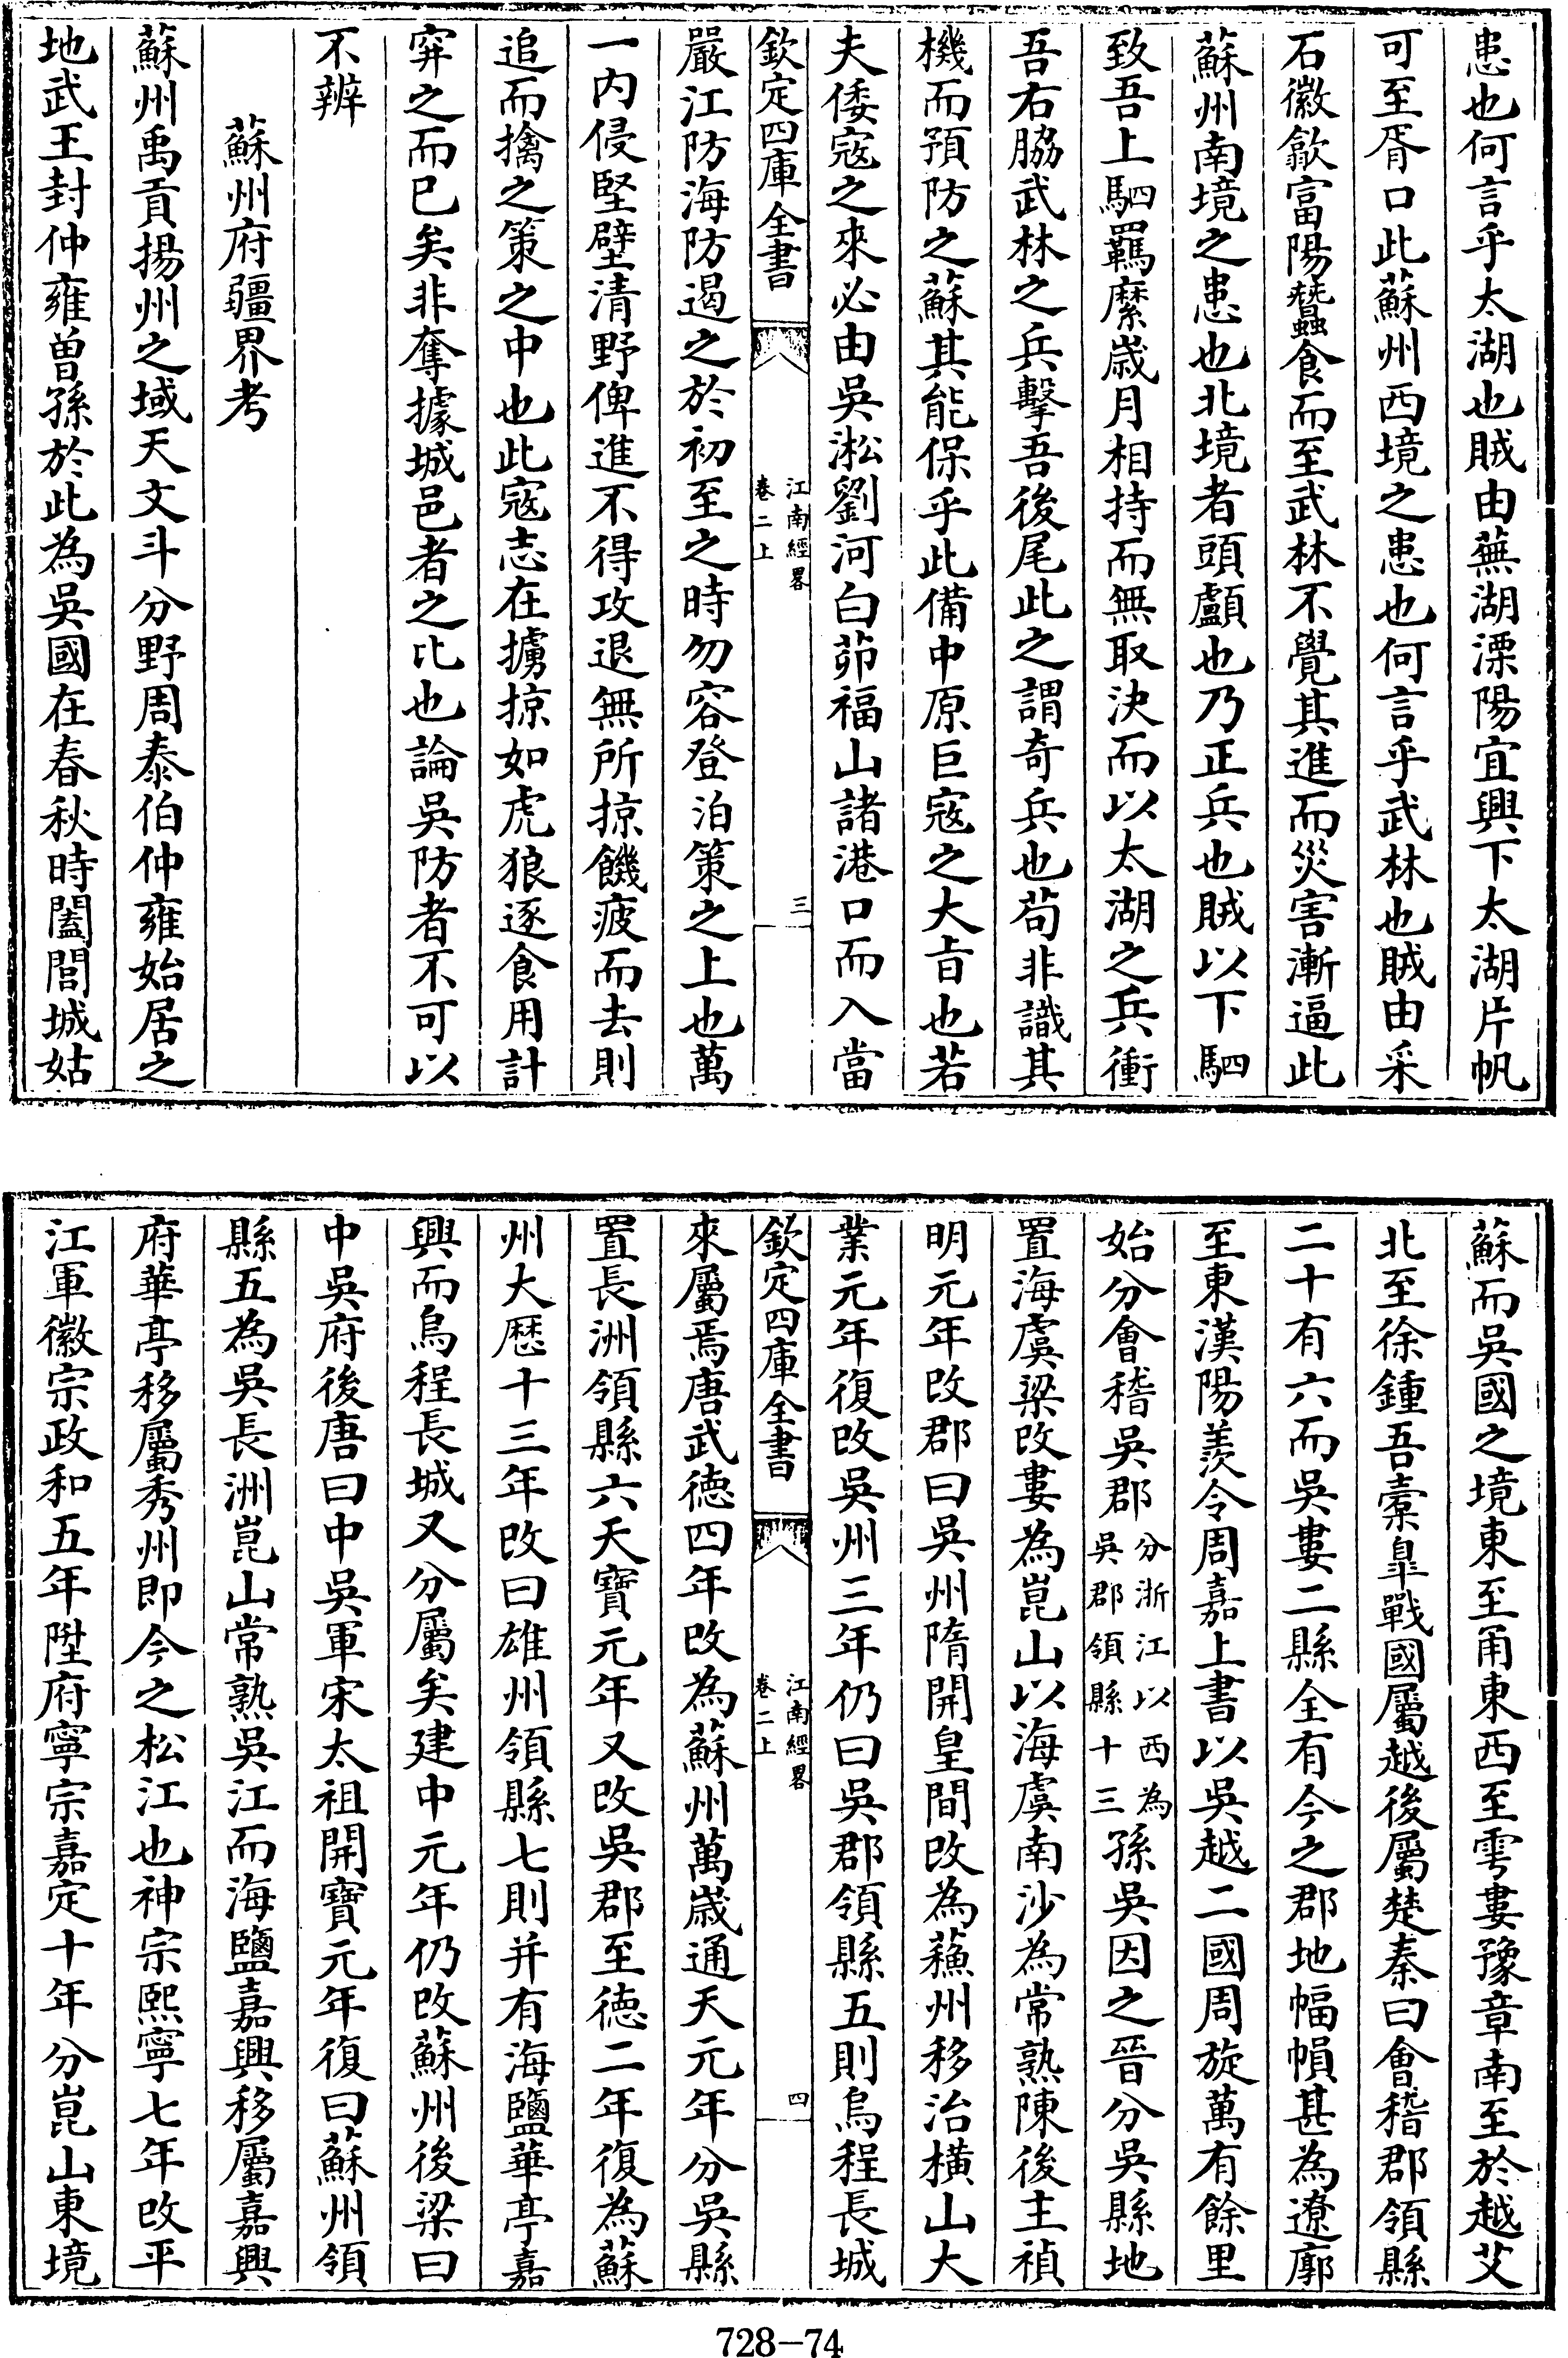 患也何言乎太湖也賊由蕪湖溧陽宜興下太湖片帆
可至胥口此蘇州西境之患也何言乎武林也賊由采
石徽歙富陽蠶食而至武林不覺其進而災害漸逼此
蘇州南境之患也北境者頭顱也乃正兵也賊以下駟
致吾上駟羈縻歲月相持而無取決而以太湖之兵衝
吾右脇武林之兵擊吾後尾此之謂奇兵也茍非識其
機而預防之蘇其能保乎此備中原巨寇之大旨也若
夫倭寇之來必由吳淞劉河白茆福山諸港口而入當
欽定四庫全書
江南經畧
卷二上
三
嚴江防海防遏之於初至之時勿容登泊策之上也萬
一内侵堅壁清野俾進不得攻退無所掠饑疲而去則
追而擒之策之中也此寇志在擄掠如虎狼逐食用計
穽之而已矣非奪據城邑者之比也論吳防者不可以
不辨
蘇州府疆界考
蘇州禹貢揚州之域天文斗分野周泰伯仲雍始居之
地武王封仲雍曾孫於此為吳國在春秋時闔閭城姑
蘇而吳國之境東至甬東西至雩婁豫章南至於越艾
北至徐鍾吾橐臯戰國屬越後屬楚秦曰會稽郡領縣
二十有六而吳婁二縣全有今之郡地幅幀甚為遼廓
至東漢陽羨令周嘉上書以吳越二國周旋萬有餘里
始分會稽吳郡分浙江以西為吳郡領縣十三孫吳因之晉分吳縣地
置海虞梁改婁為崑山以海虞南沙為常熟陳後主禎
明元年改郡曰吳州隋開皇間改為蘓州移治橫山大
業元年復改吳州三年仍曰吳郡領縣五則烏程長城
欽定四庫全書
江南經畧
卷二上
四
來屬焉唐武徳四年改為蘇州萬歲通天元年分吳縣
置長洲領縣六天寶元年又改吳郡至徳二年復為蘇
州大厯十三年改曰雄州領縣七則并有海鹽華亭嘉
興而烏程長城又分屬矣建中元年仍改蘇州後梁曰
中吳府後唐曰中吳軍宋太祖開寶元年復曰蘇州領
縣五為吳長洲崑山常熟吳江而海鹽嘉興移屬嘉興
府華亭移屬秀州即今之松江也神宗熙寧七年改平
江軍徽宗政和五年陞府寧宗嘉定十年分崑山東境
728-74